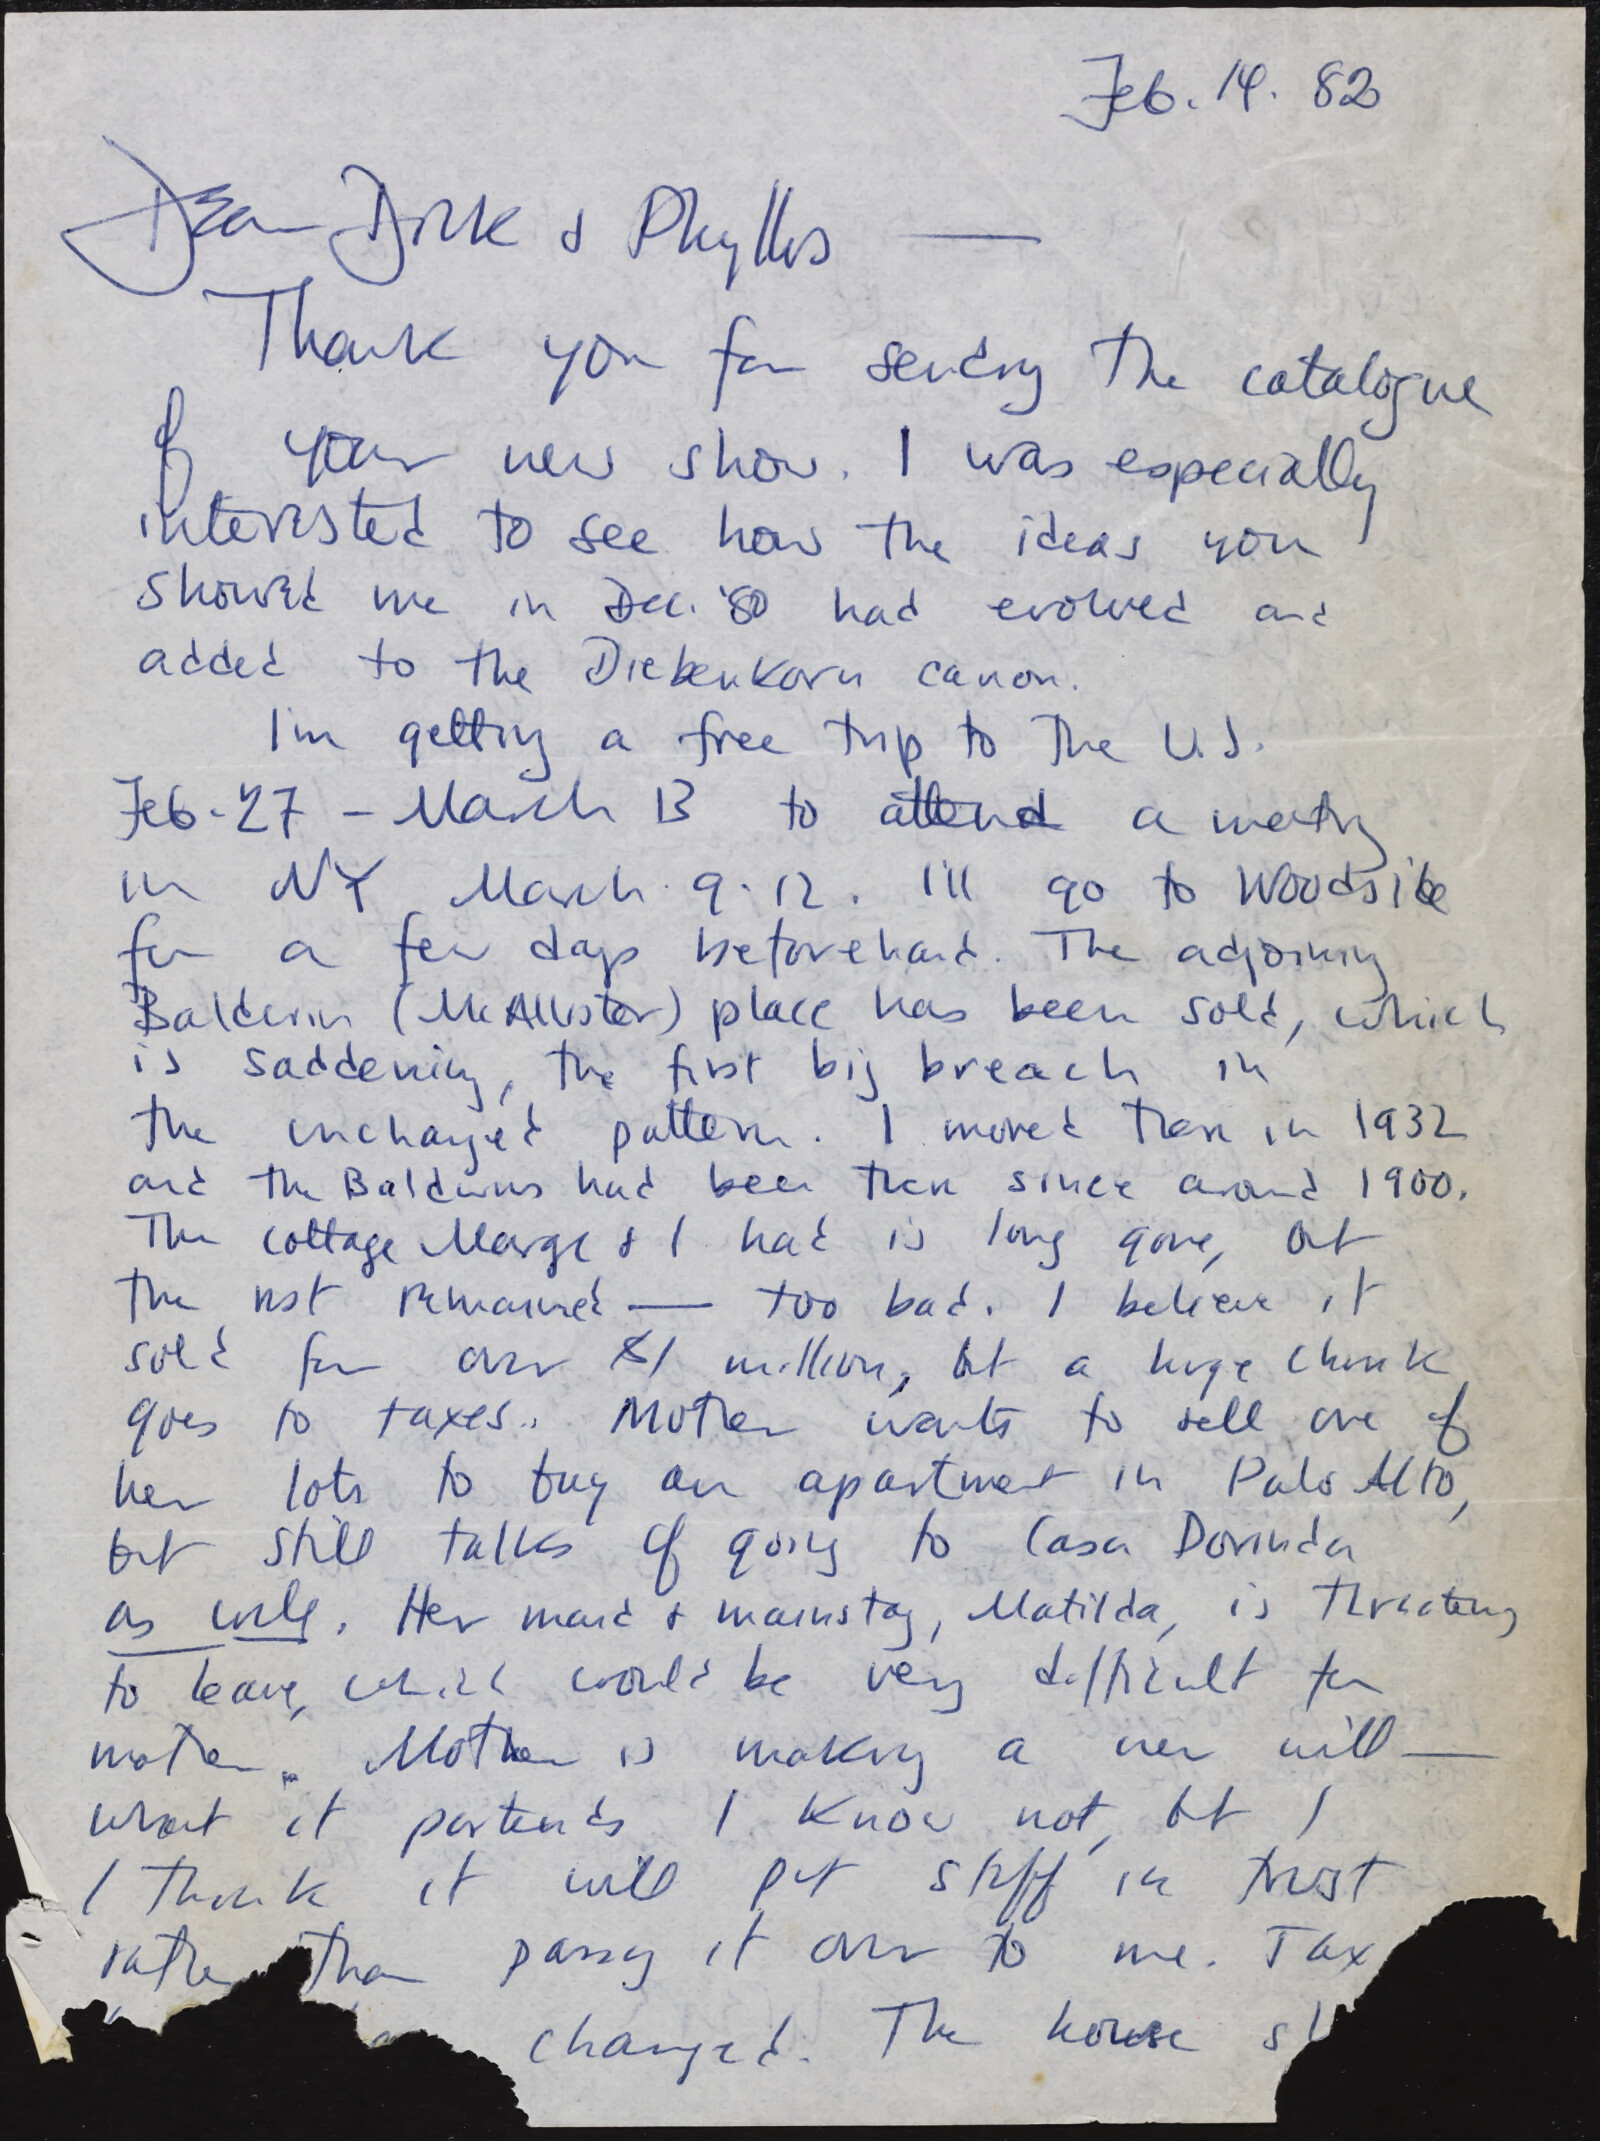 Feb. 14. 82
Dear Dick & Phyllis —
Thank you for sending the catalogue
of your new show. I was especially
interested to see how the ideas you
showed me in Dec. '80 had evolved and
added to the Diebenkorn canon.
I'm getting a free trip to the U.S.
Feb. 27 - March 13 to attend a meeting
in NY March 9-12. I'll go to Woodside
for a few days beforehand. The adjoining
Baldwin (McAllister) place has been sold, which
is saddening, the first big breach in
the unchanged pattern. I moved there in 1932
and the Baldwins had been there since around 1900.
The cottage Marge & I had is long gone, but
the rest remained — too bad. I believe it
sold for over $1 million, but a huge chunk
goes to taxes. Mother wants to sell one of
her lots to buy an apartment in Palo Alto,
but still talks of going to Casa Dorinda
as well. Her maid & mainstay, Matilda, is threatening
to leave, which would be very difficult for
mother. Mother is making a new will —
what it portends I know not, but I
I think it will put stuff in trust
rather than passing it over to me. Tax
changed. The house